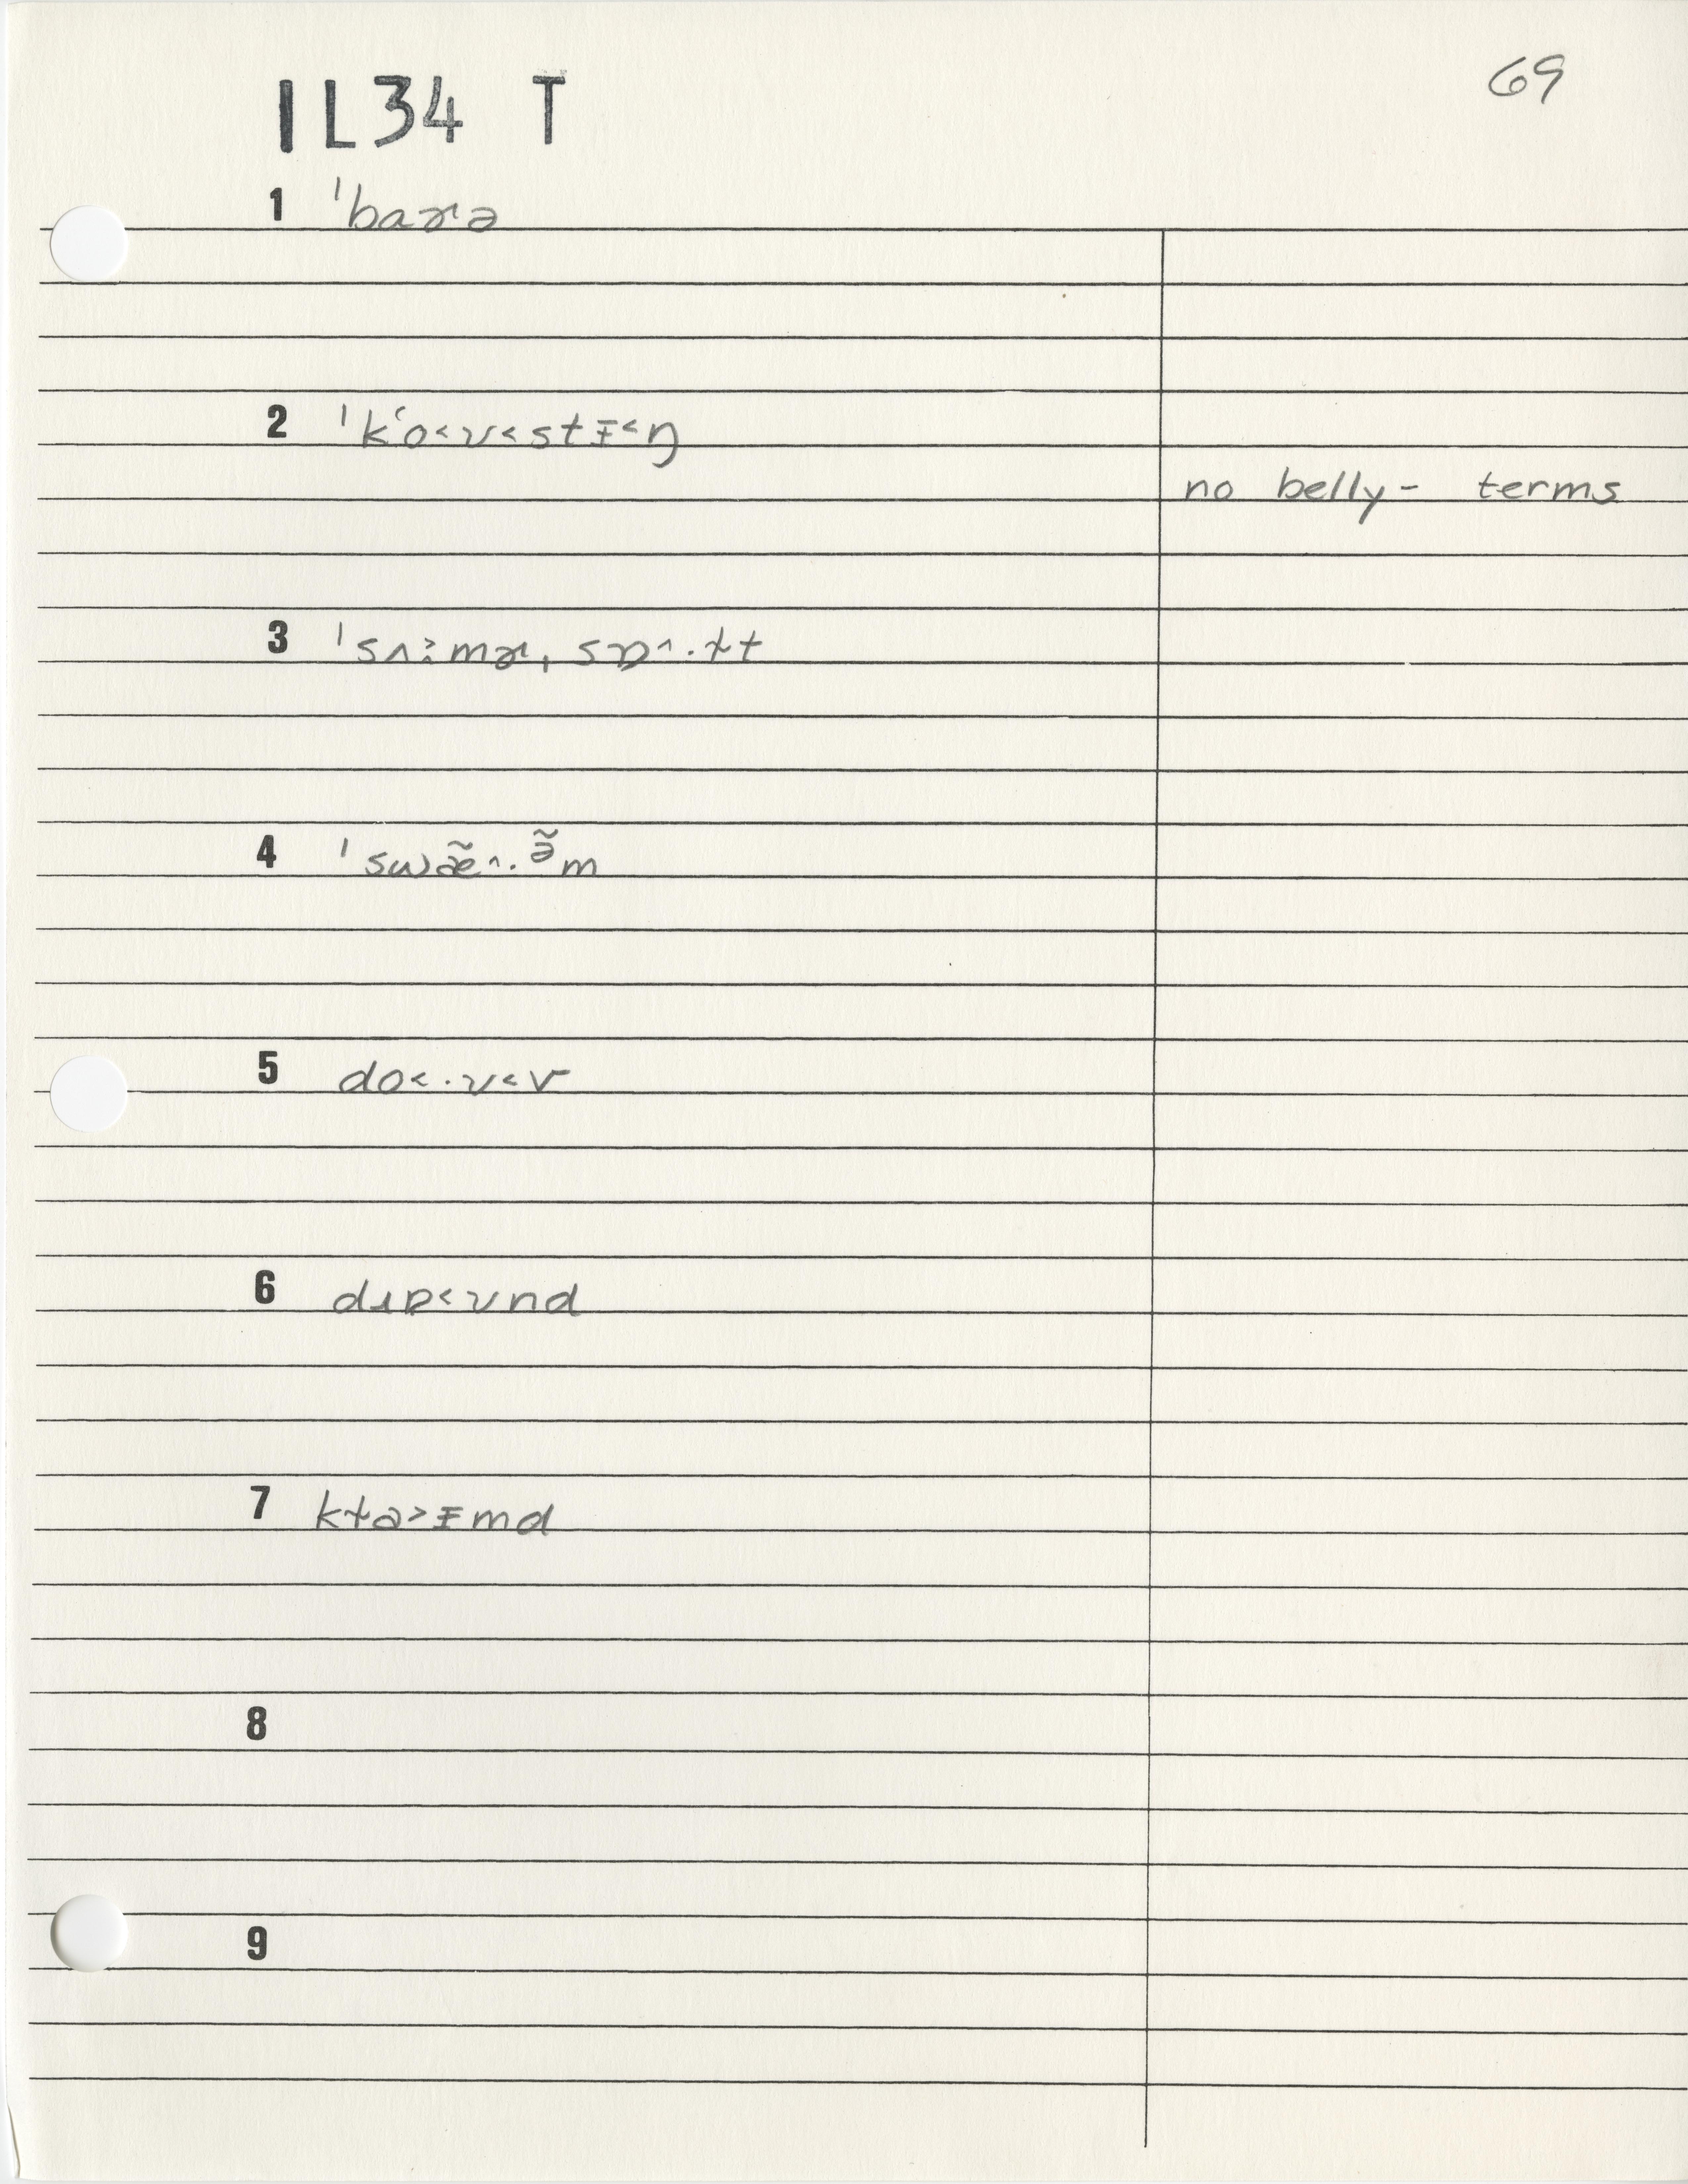 IL34 T
69
1 ˈbaɚə
2 ˈkʻo˂ʊ˂stɪ̵˂ŋ
no belly- terms
3 ˈsʌ˃:mɚ, sɒ˄·ɫt
4 ˈswæ̃˄·ə̃m
5 do˂·ʊ˂v
6 dɹɒ˂ʊnd
7 kɫa˃ɪ̵md
8
9